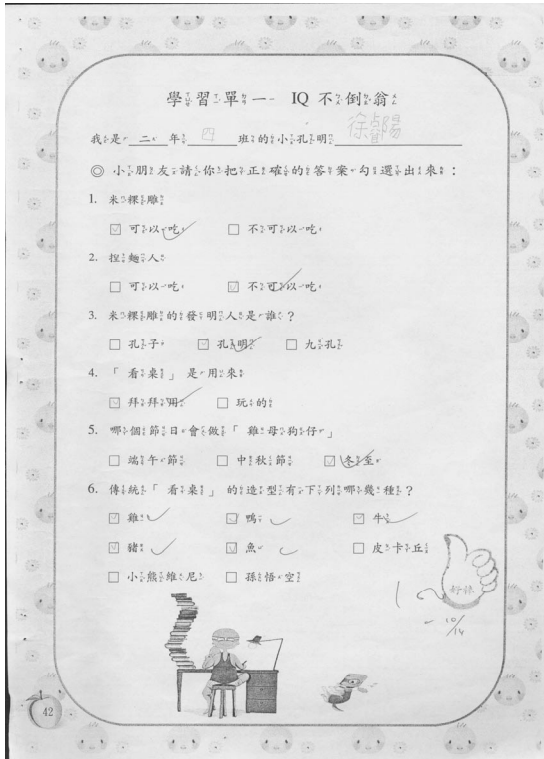 學習單一 IQ不倒翁
我是 二 年 四 班的小孔明
◎小朋友請你把正確的答案勾選出來：
1. 米粿雕
☑可以吃 □不可以吃
2. 捏麵人
□可以吃 ☑不可以吃
3. 米粿雕的發明人是誰？
□孔子 ☑孔明 □九孔
4. 「看桌」是用來
☑拜拜用 □玩的
5. 哪個節日會做「雞母狗仔」
□端午節 □中秋節 ☑冬至
6. 傳統「看桌」的造型有下列哪幾種？
☑雞 ☑鴨 ☑牛
☑豬 ☑魚 □皮卡丘
□小熊維尼 □孫悟空
好棒
10/14
42